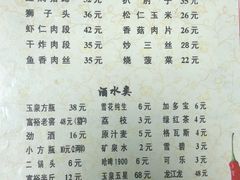 狮子头 32元 松仁玉米 26元
虾仁肉段 42元 香菇肉片 26元
干炸肉段 35元 炒三丝 28元
鱼香肉丝 35元 烧菠菜 22元
酒水类
玉泉方瓶 38元 雪花纯生 6元 加多宝 6元
富裕老窖 48元 荔枝 3元 绿红茶 4元
劲酒 16元 原汁麦 5元 格瓦斯 4元
小方瓶 矿泉水 2元 雪碧 3元
二锅头 6元 哈啤1900 6元 可乐 3元
富裕半斤 12元 玉泉五星 68元 龙江龙 48元